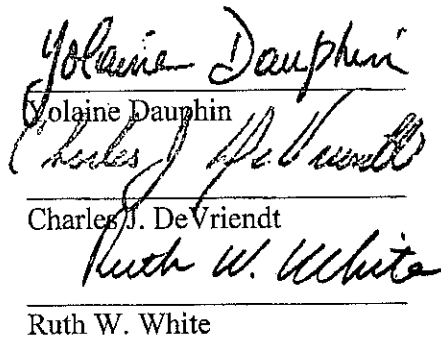 Yolaine Dauphin
Yolaine Dauphin
Charles J. DeVriendt
Charles J. DeVriendt
Ruth W. White
Ruth W. White